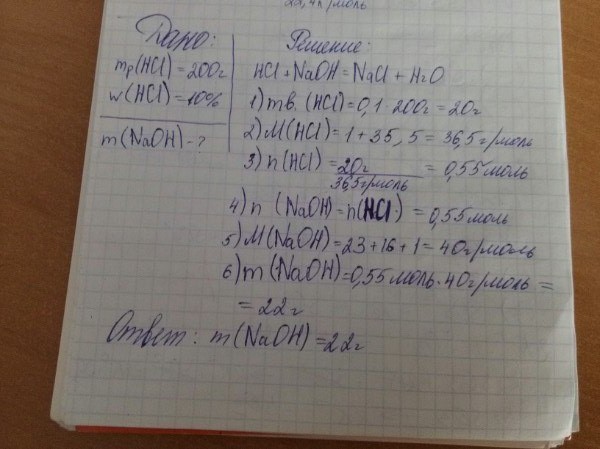 22,4л/моль
Дано:
mр(HCl)=200г
w(HCl)=10%
m(NaOH)-?
Решение:
HCl+NaOH=NaCl+H2O
1) mв.(HCl)=0,1·200г=20г
2) M(HCl)=1+35,5=36,5г/моль
3) n(HCl)=20г/36,5г/моль=0,55моль
4) n(NaOH)=n(HCl)=0,55моль
5) M(NaOH)=23+16+1=40г/моль
6) m(NaOH)=0,55моль·40г/моль=
=22г
Ответ: m(NaOH)=22г